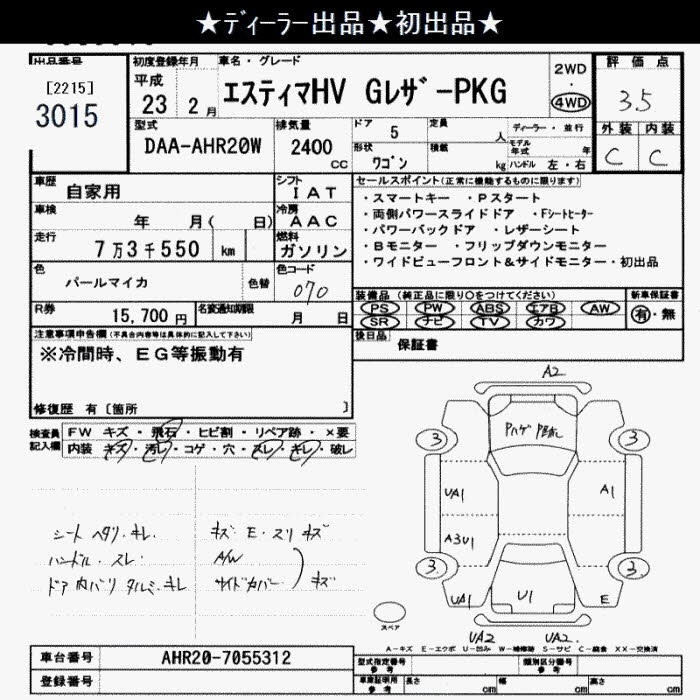 ★ディーラー出品★初出品★
出品番号
[2215]
3015
初度登録年月
平成
23年 2月
車名・グレード
エスティマHV Gレザ-PKG
2WD
・
4WD
評価点
3.5
外装 内装
C C
型式
DAA-AHR20W
排気量
2400
cc
ドア 5
定員 人
ディーラー・並行
形状 ワゴン
積載 kg
モデル年式 年
ハンドル 左・右
車歴 自家用
シフト IAT
車検 年 月( 日)
冷房 AAC
走行 7万3千550 km
燃料 ガソリン
色 パールマイカ 色替
色コード 070
R券 15,700円
名変通知期限 月 日
セールスポイント(正常に機能するものに限ります)
・スマートキー ・Pスタート
・両側パワースライドドア ・Fシートヒーター
・パワーバックドア ・レザーシート
・Bモニター ・フリップダウンモニター
・ワイドビューフロント&サイドモニター・初出品
装備品(純正品に限り○をつけてください)
新車保証書
PS PW ABS エアB AW
SR ナビ TV カワ
有・無
後日品 保証書
注意事項申告欄(不具合内容等は具体的に記入して下さい)
※冷間時、EG等振動有
修復歴 有[箇所 ]
検査員記入欄
FW キズ・飛石・ヒビ割・リペア跡・×要
内装 キズ・汚レ・コゲ・穴・スレ・キレ・破レ
シート ヘタリ・キレ
ハンドル・スレ
ドア内バリ タルミ・キレ
キズ E・スリキズ
A/W
サイドカバー
キズ
A2
3 3
UA1 A1
A3U1
3 3
UA1 U1 E
UA2 UA2
スペア
A-キズ E-エクボ U-凹み W-補修跡 S-サビ C-腐食 XX-交換済
車台番号 AHR20-7055312
登録番号
型式指定番号 参考
類別区分番号 参考
車庫証明用 参考
長さ cm 幅 cm 高さ cm